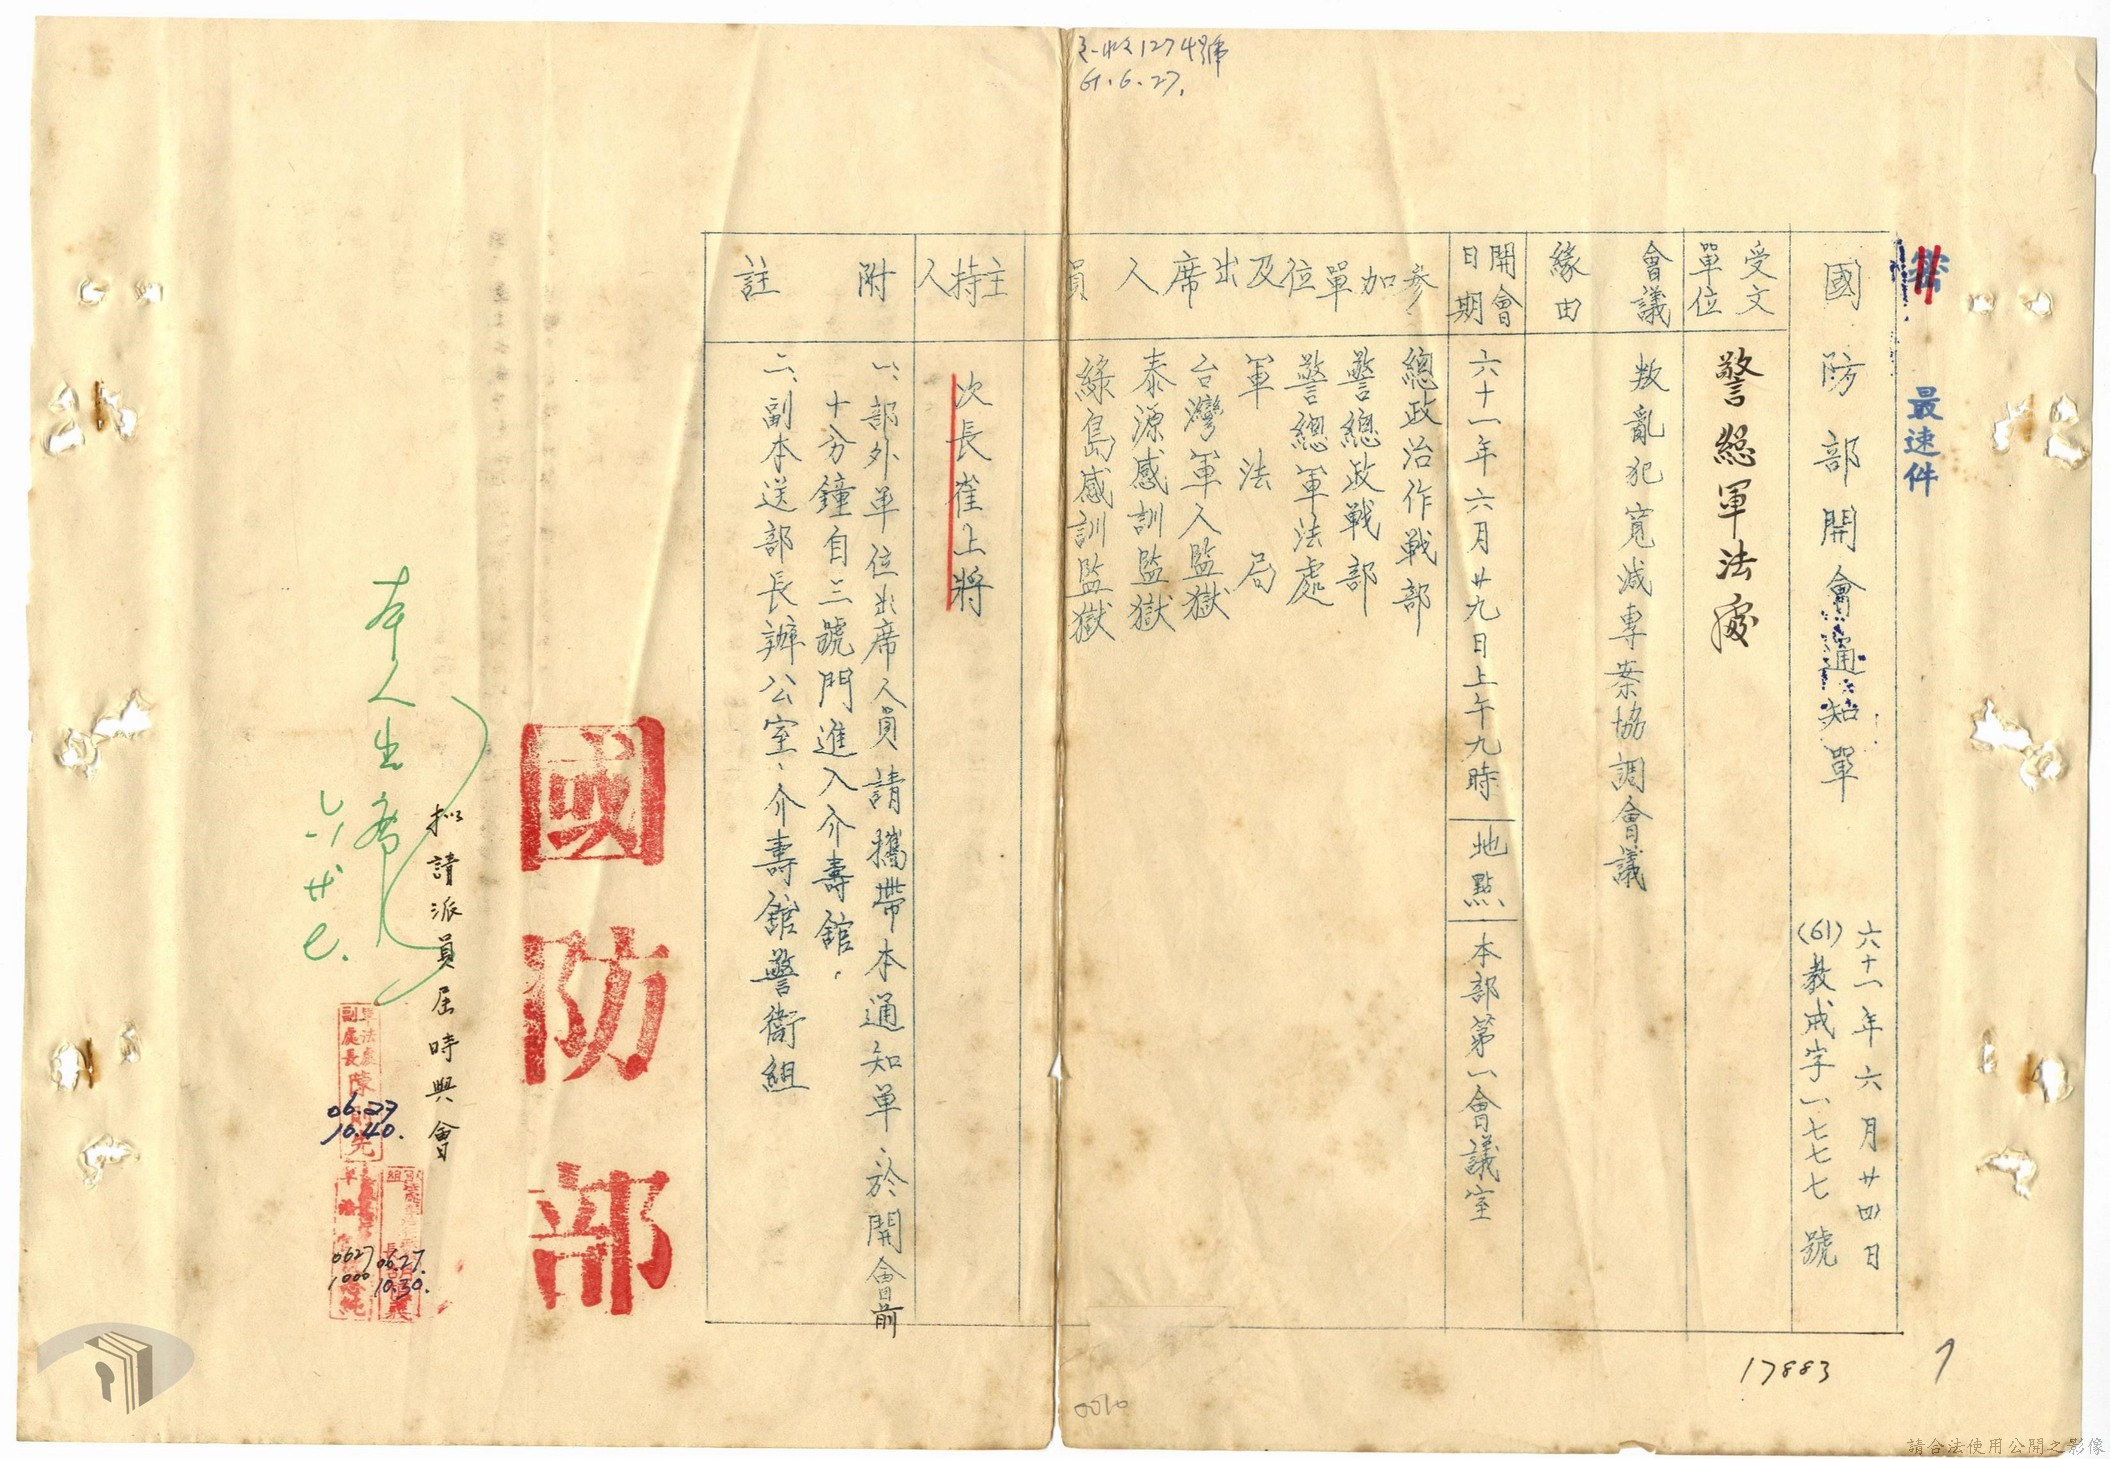 最速件
國防部開會通知單
六十一年六月廿四日
(61)教戒字一七七七號
受文單位
警總軍法處
會議緣由
叛亂犯寬減專案協調會議
開會日期
六十一年六月廿九日上午九時
地點
本部第一會議室
參加單位及出席人員
總政治作戰部
警總政戰部
警總軍法處
軍法局
台灣軍人監獄
泰源感訓監獄
綠島感訓監獄
主持人
次長崔上將
附註
一、部外單位出席人員請攜帶本通知單、於開會前
十分鐘自三號門進入介壽館。
二、副本送部長辦公室、介壽館警衛組
國防部
擬請派員屆時與會
本人出席
六廿七.
軍法處
副處長
06.27
10.40.
06.27.
10.30.
0627
1000
1274號
61.6.27.
17883
0010
請合法使用公開之影像